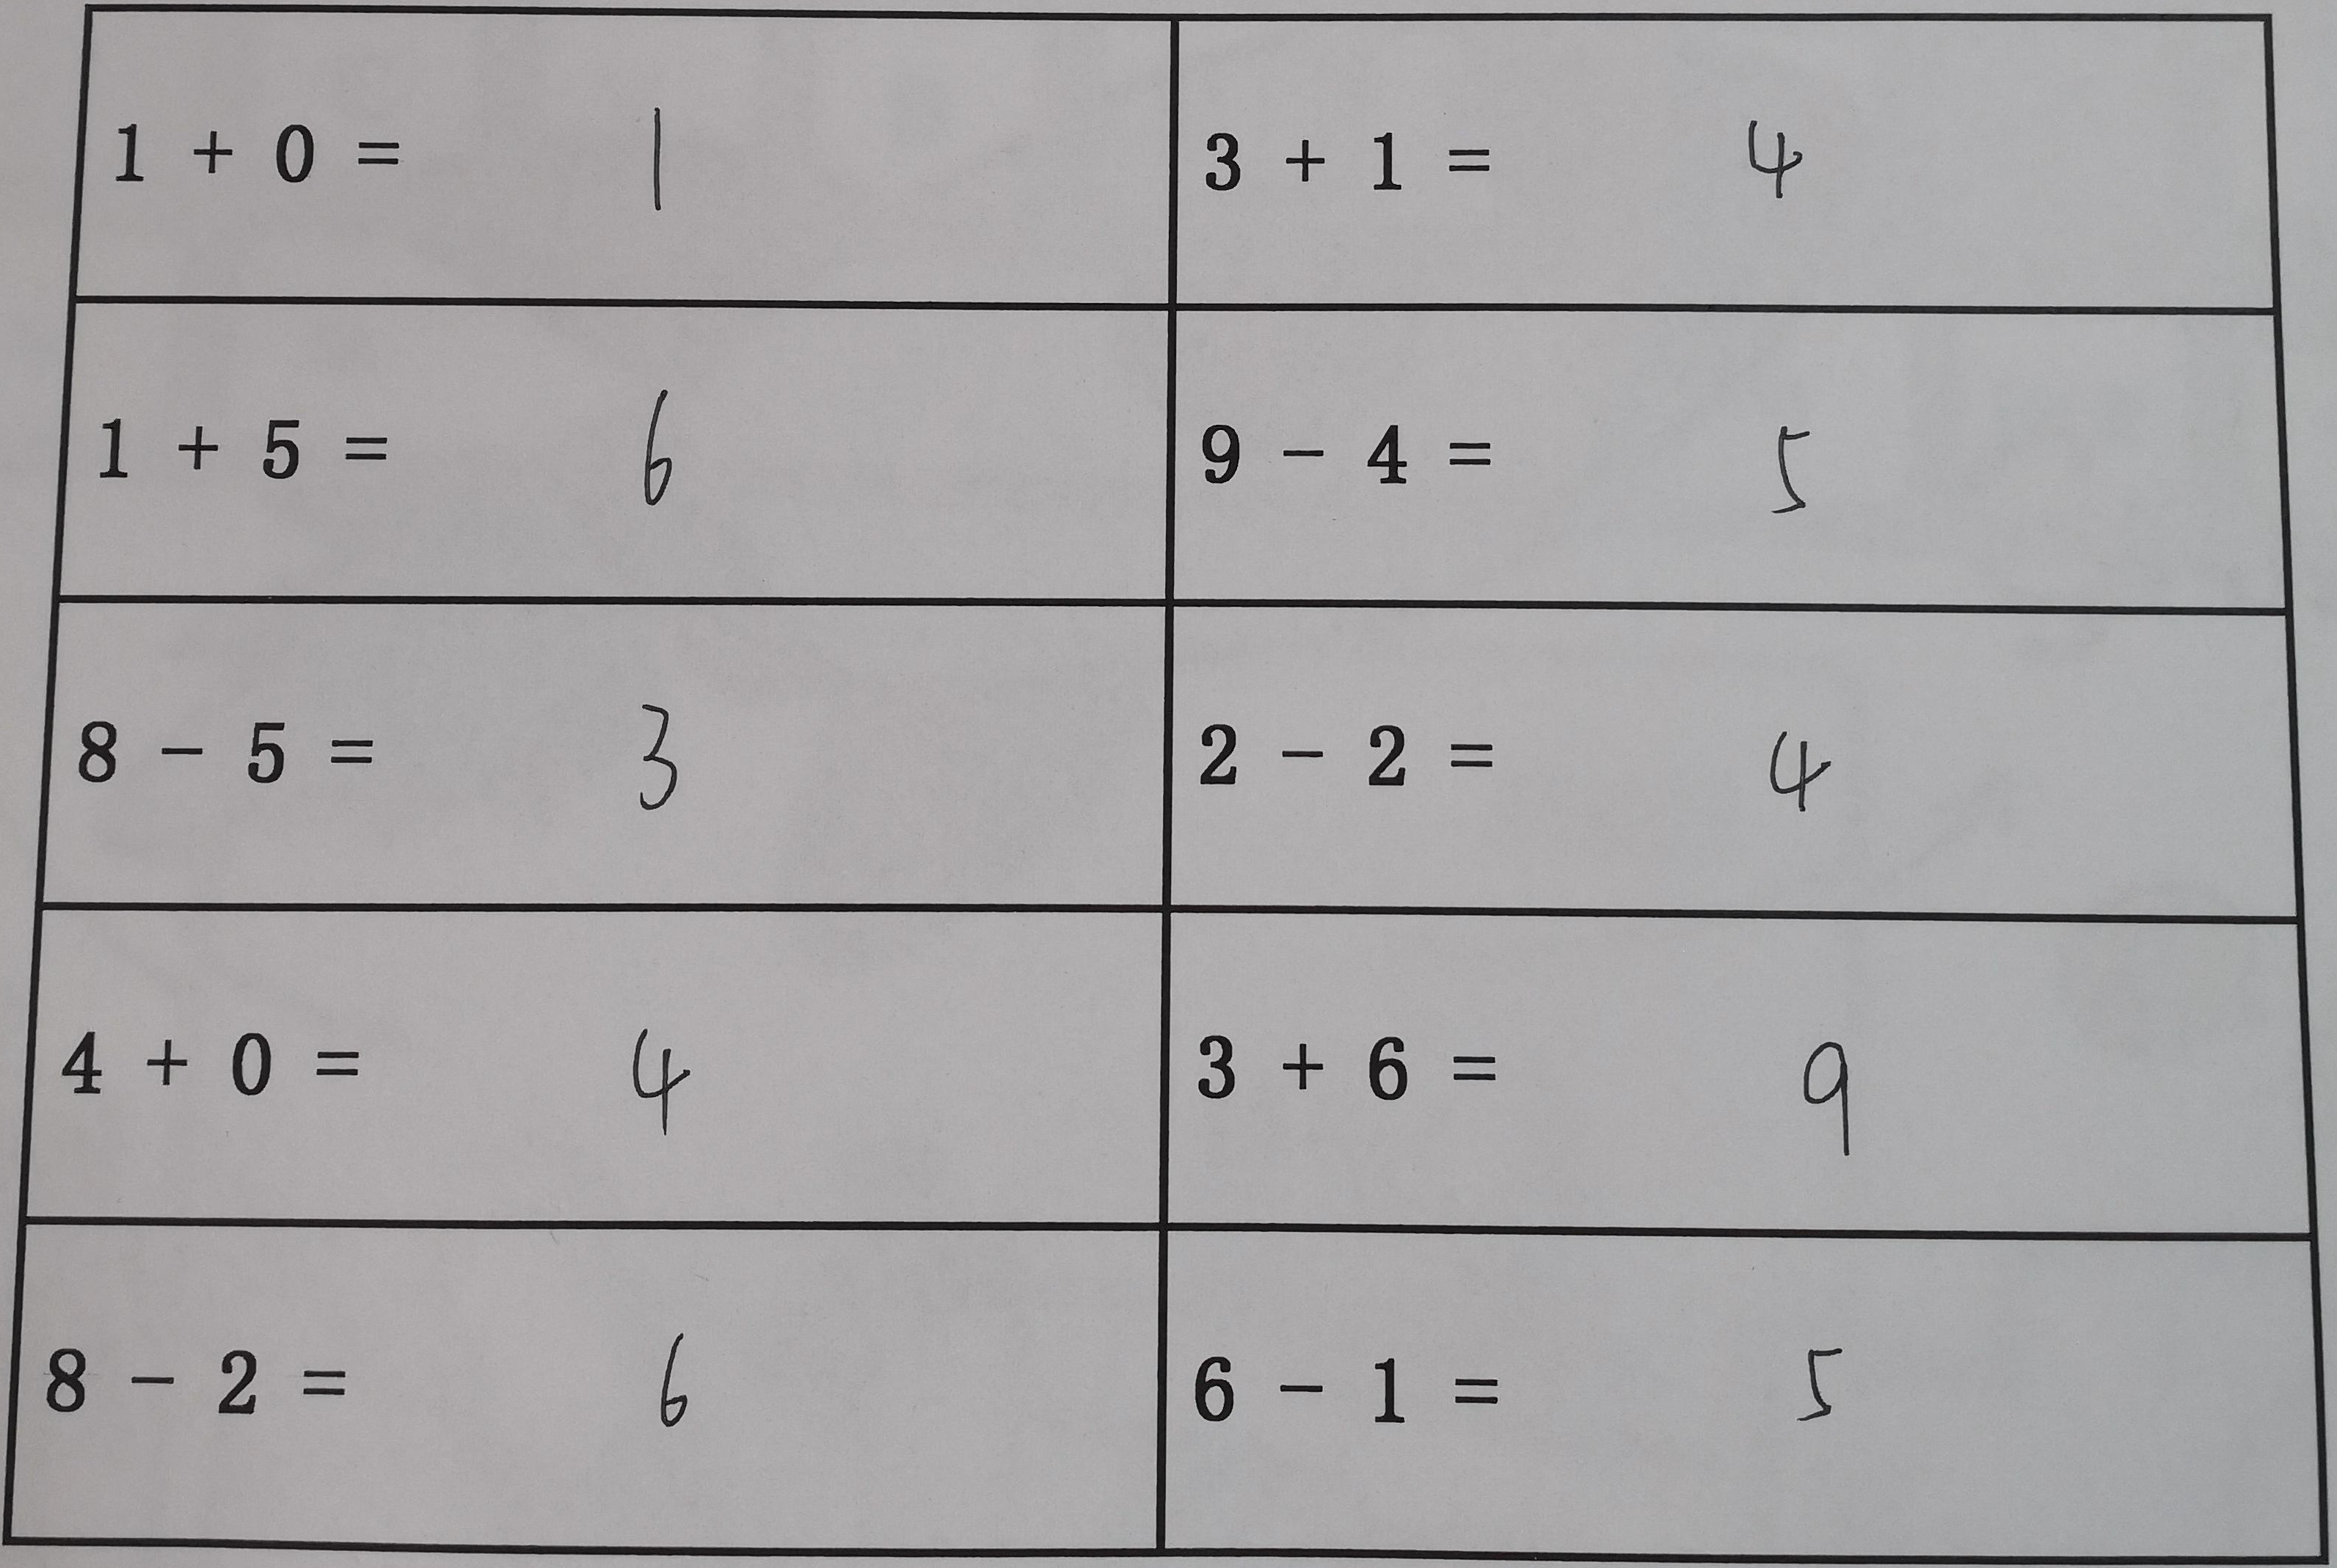 1 + 0 = 1
3 + 1 = 4
1 + 5 = 6
9 - 4 = 5
8 - 5 = 3
2 - 2 = 4
4 + 0 = 4
3 + 6 = 9
8 - 2 = 6
6 - 1 = 5